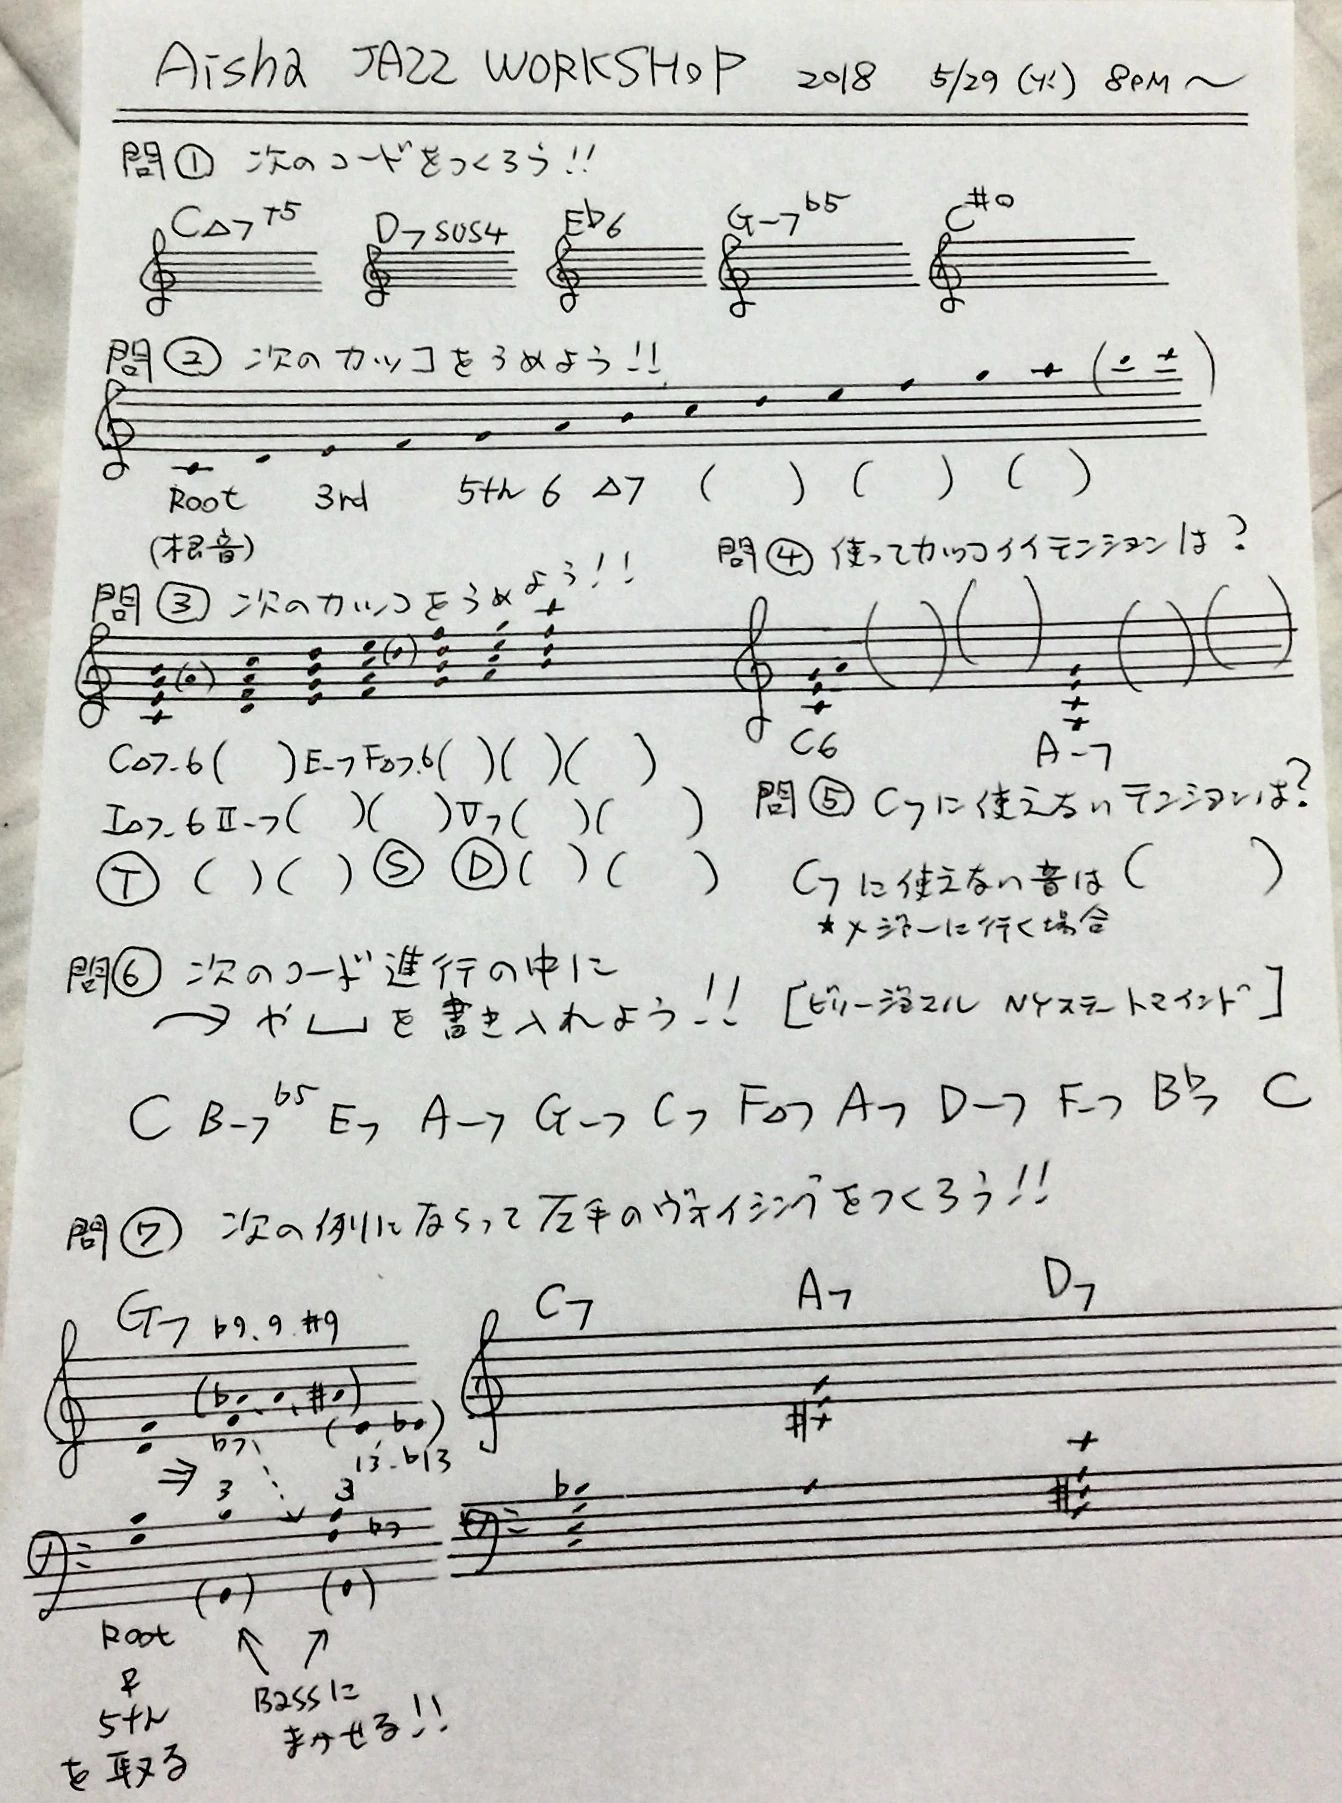 Aisha JAZZ WORKSHOP 2018 5/29 (火) 8PM〜
問① 次のコードをつくろう!!
C△7+5 D7sus4 E♭6 G-7♭5 C#o
問② 次のカッコをうめよう!!
Root 3rd 5th 6 △7 ( ) ( ) ( )
(根音)
問③ 次のカッコをうめよう!!
C△7.6 ( ) E-7 F△7.6 ( ) ( ) ( )
I△7.6 II-7 ( ) ( ) V7 ( ) ( )
Ⓣ ( ) ( ) Ⓢ Ⓓ ( ) ( )
問④ 使ってカッコイイテンションは?
C6 A-7
問⑤ C7に使えないテンションは?
C7に使えない音は ( )
★メジャーに行く場合
問⑥ 次のコード進行の中に
や を書き入れよう!! [ビリージョエル NYステートマインド]
C B-7♭5 E7 A-7 G-7 C7 F△7 A7 D-7 F-7 B♭7 C
問⑦ 次の例にならって左手のヴォイシングをつくろう!!
G7 ♭9.9.#9 C7 A7 D7
♭7 13.♭13
3 3 ♭7
Root
と
5th
を取る
Bassに
まかせる!!